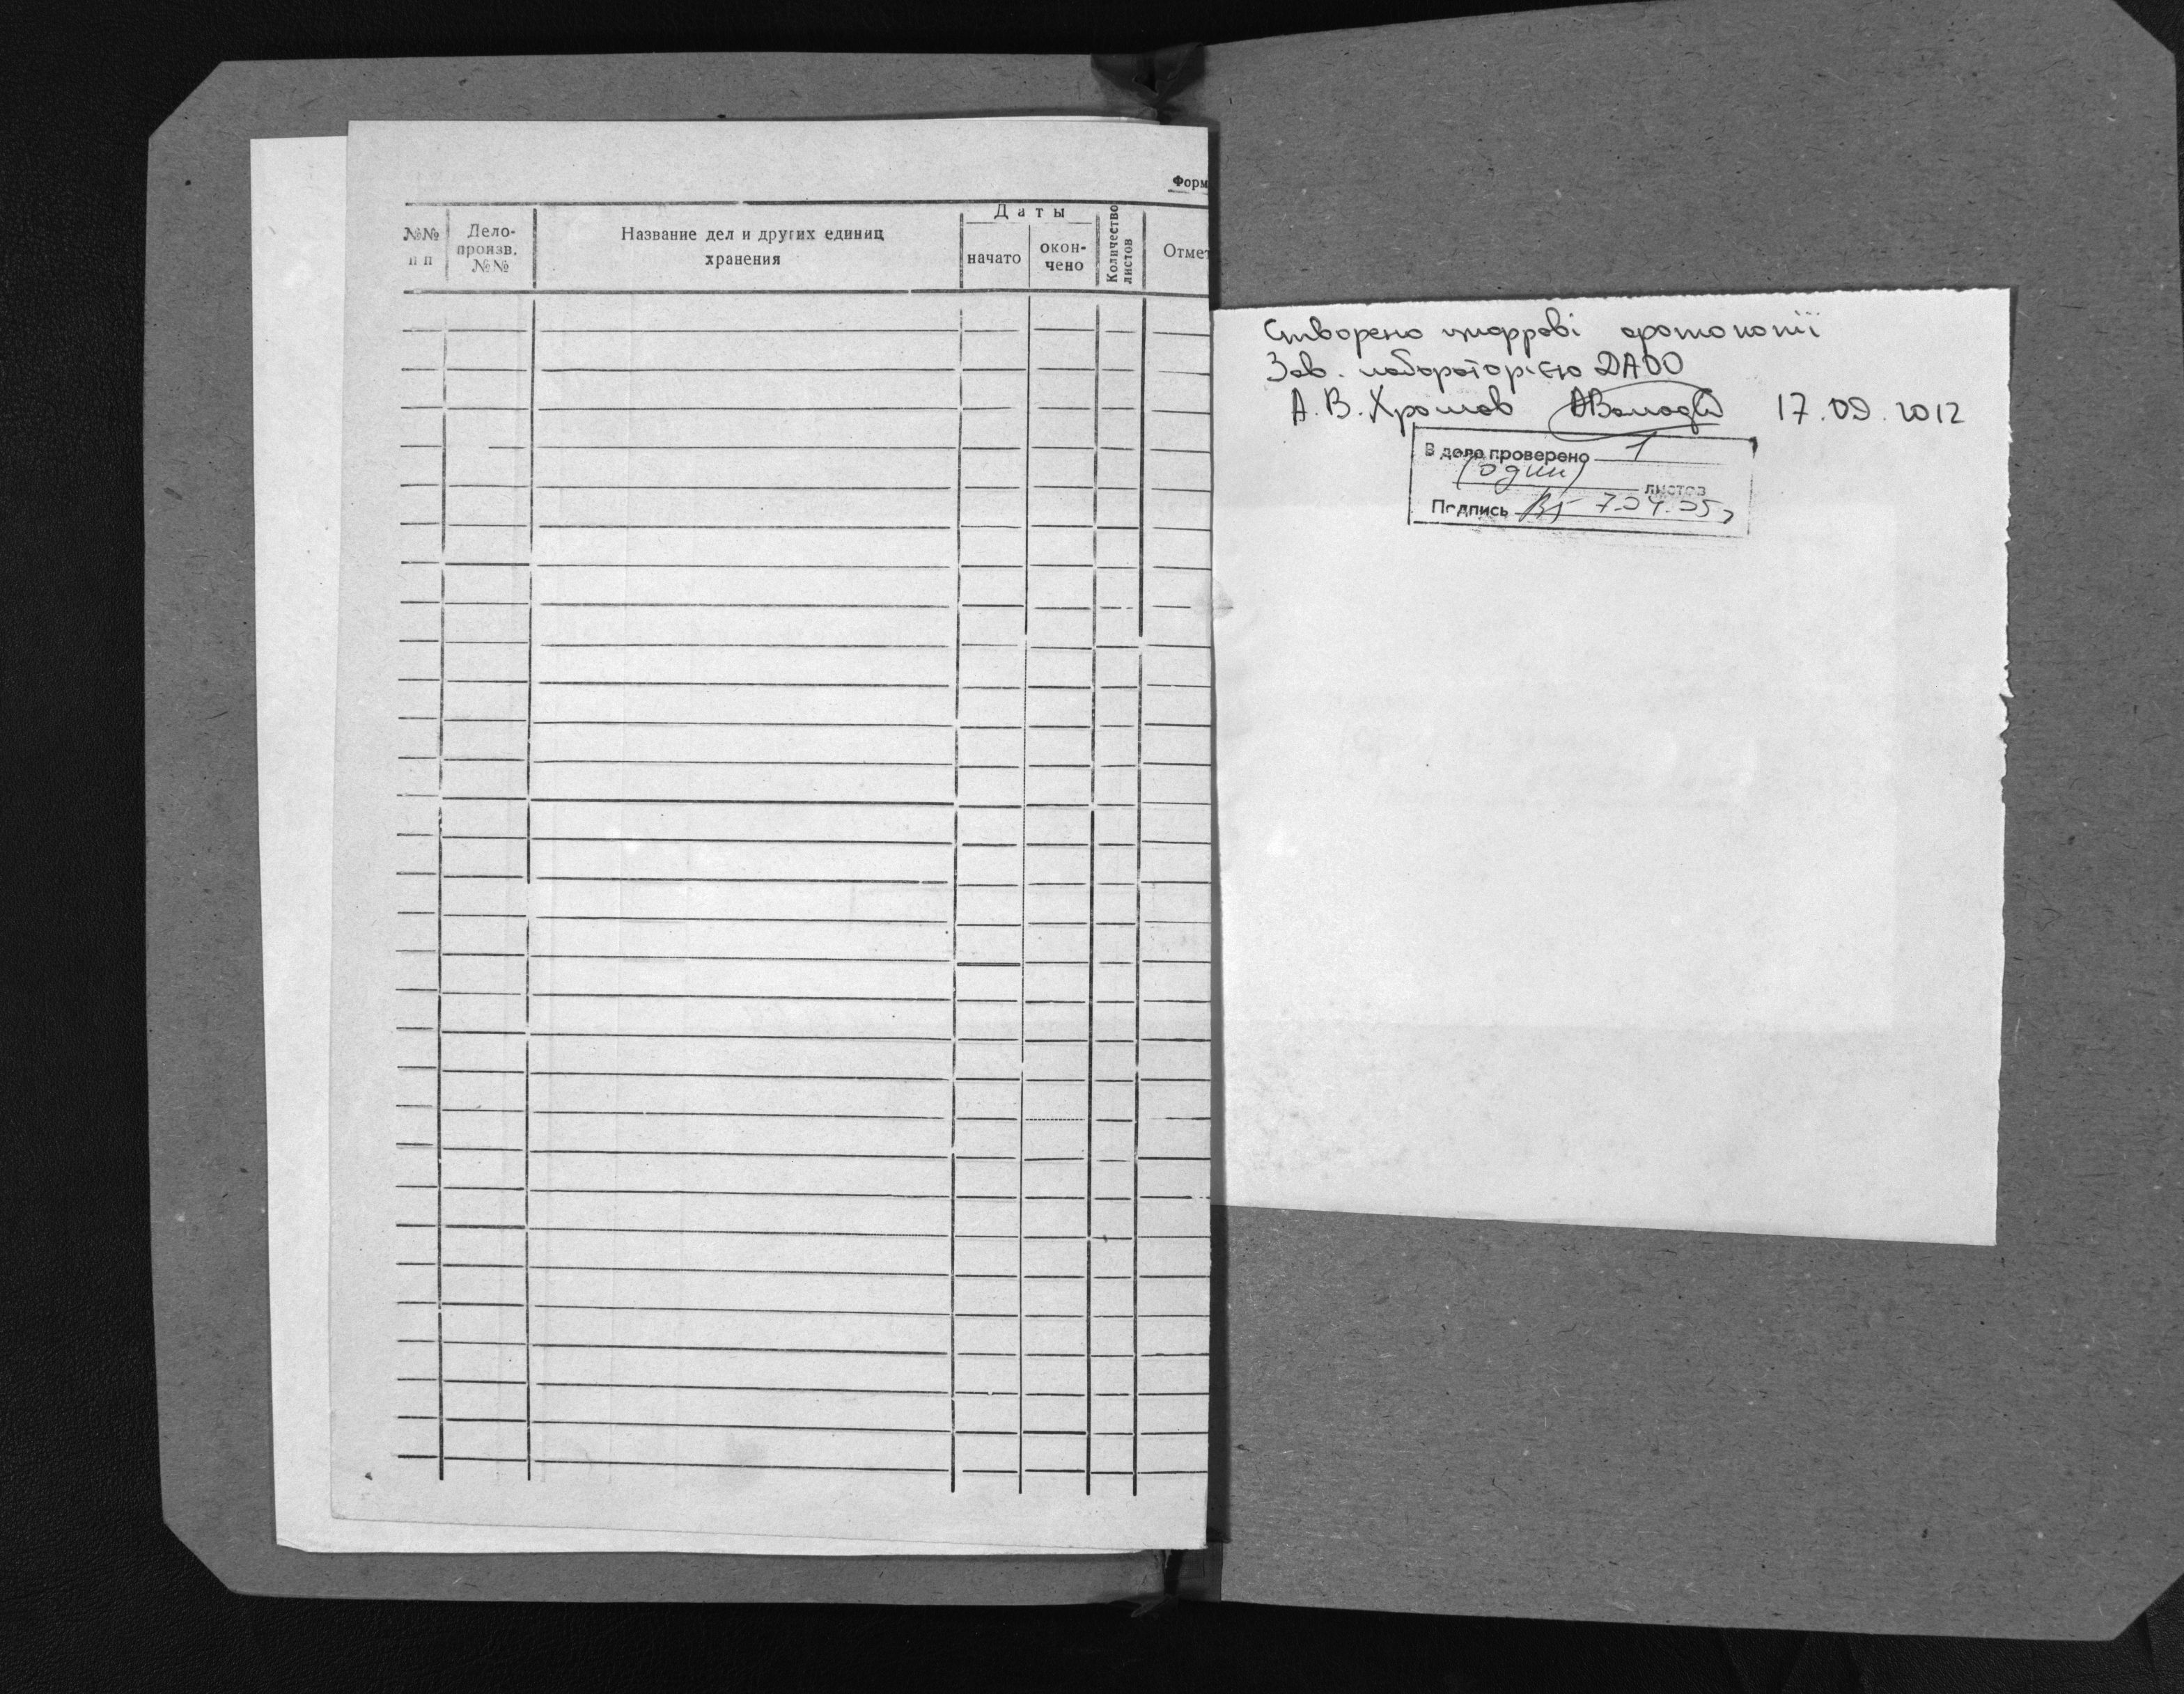 Форм
№№
п п
Дело-
произв.
№№
Название дел и других единиц
хранения
Даты
начато
окон-
чено
Количество
листов
Отмет
Створено цифрові фотокопії
Зав. лабораторією ДАОО
А. В. Хромов 17.09.2012
В деле проверено 1
(один)
листов
Подпись 7.04.05г